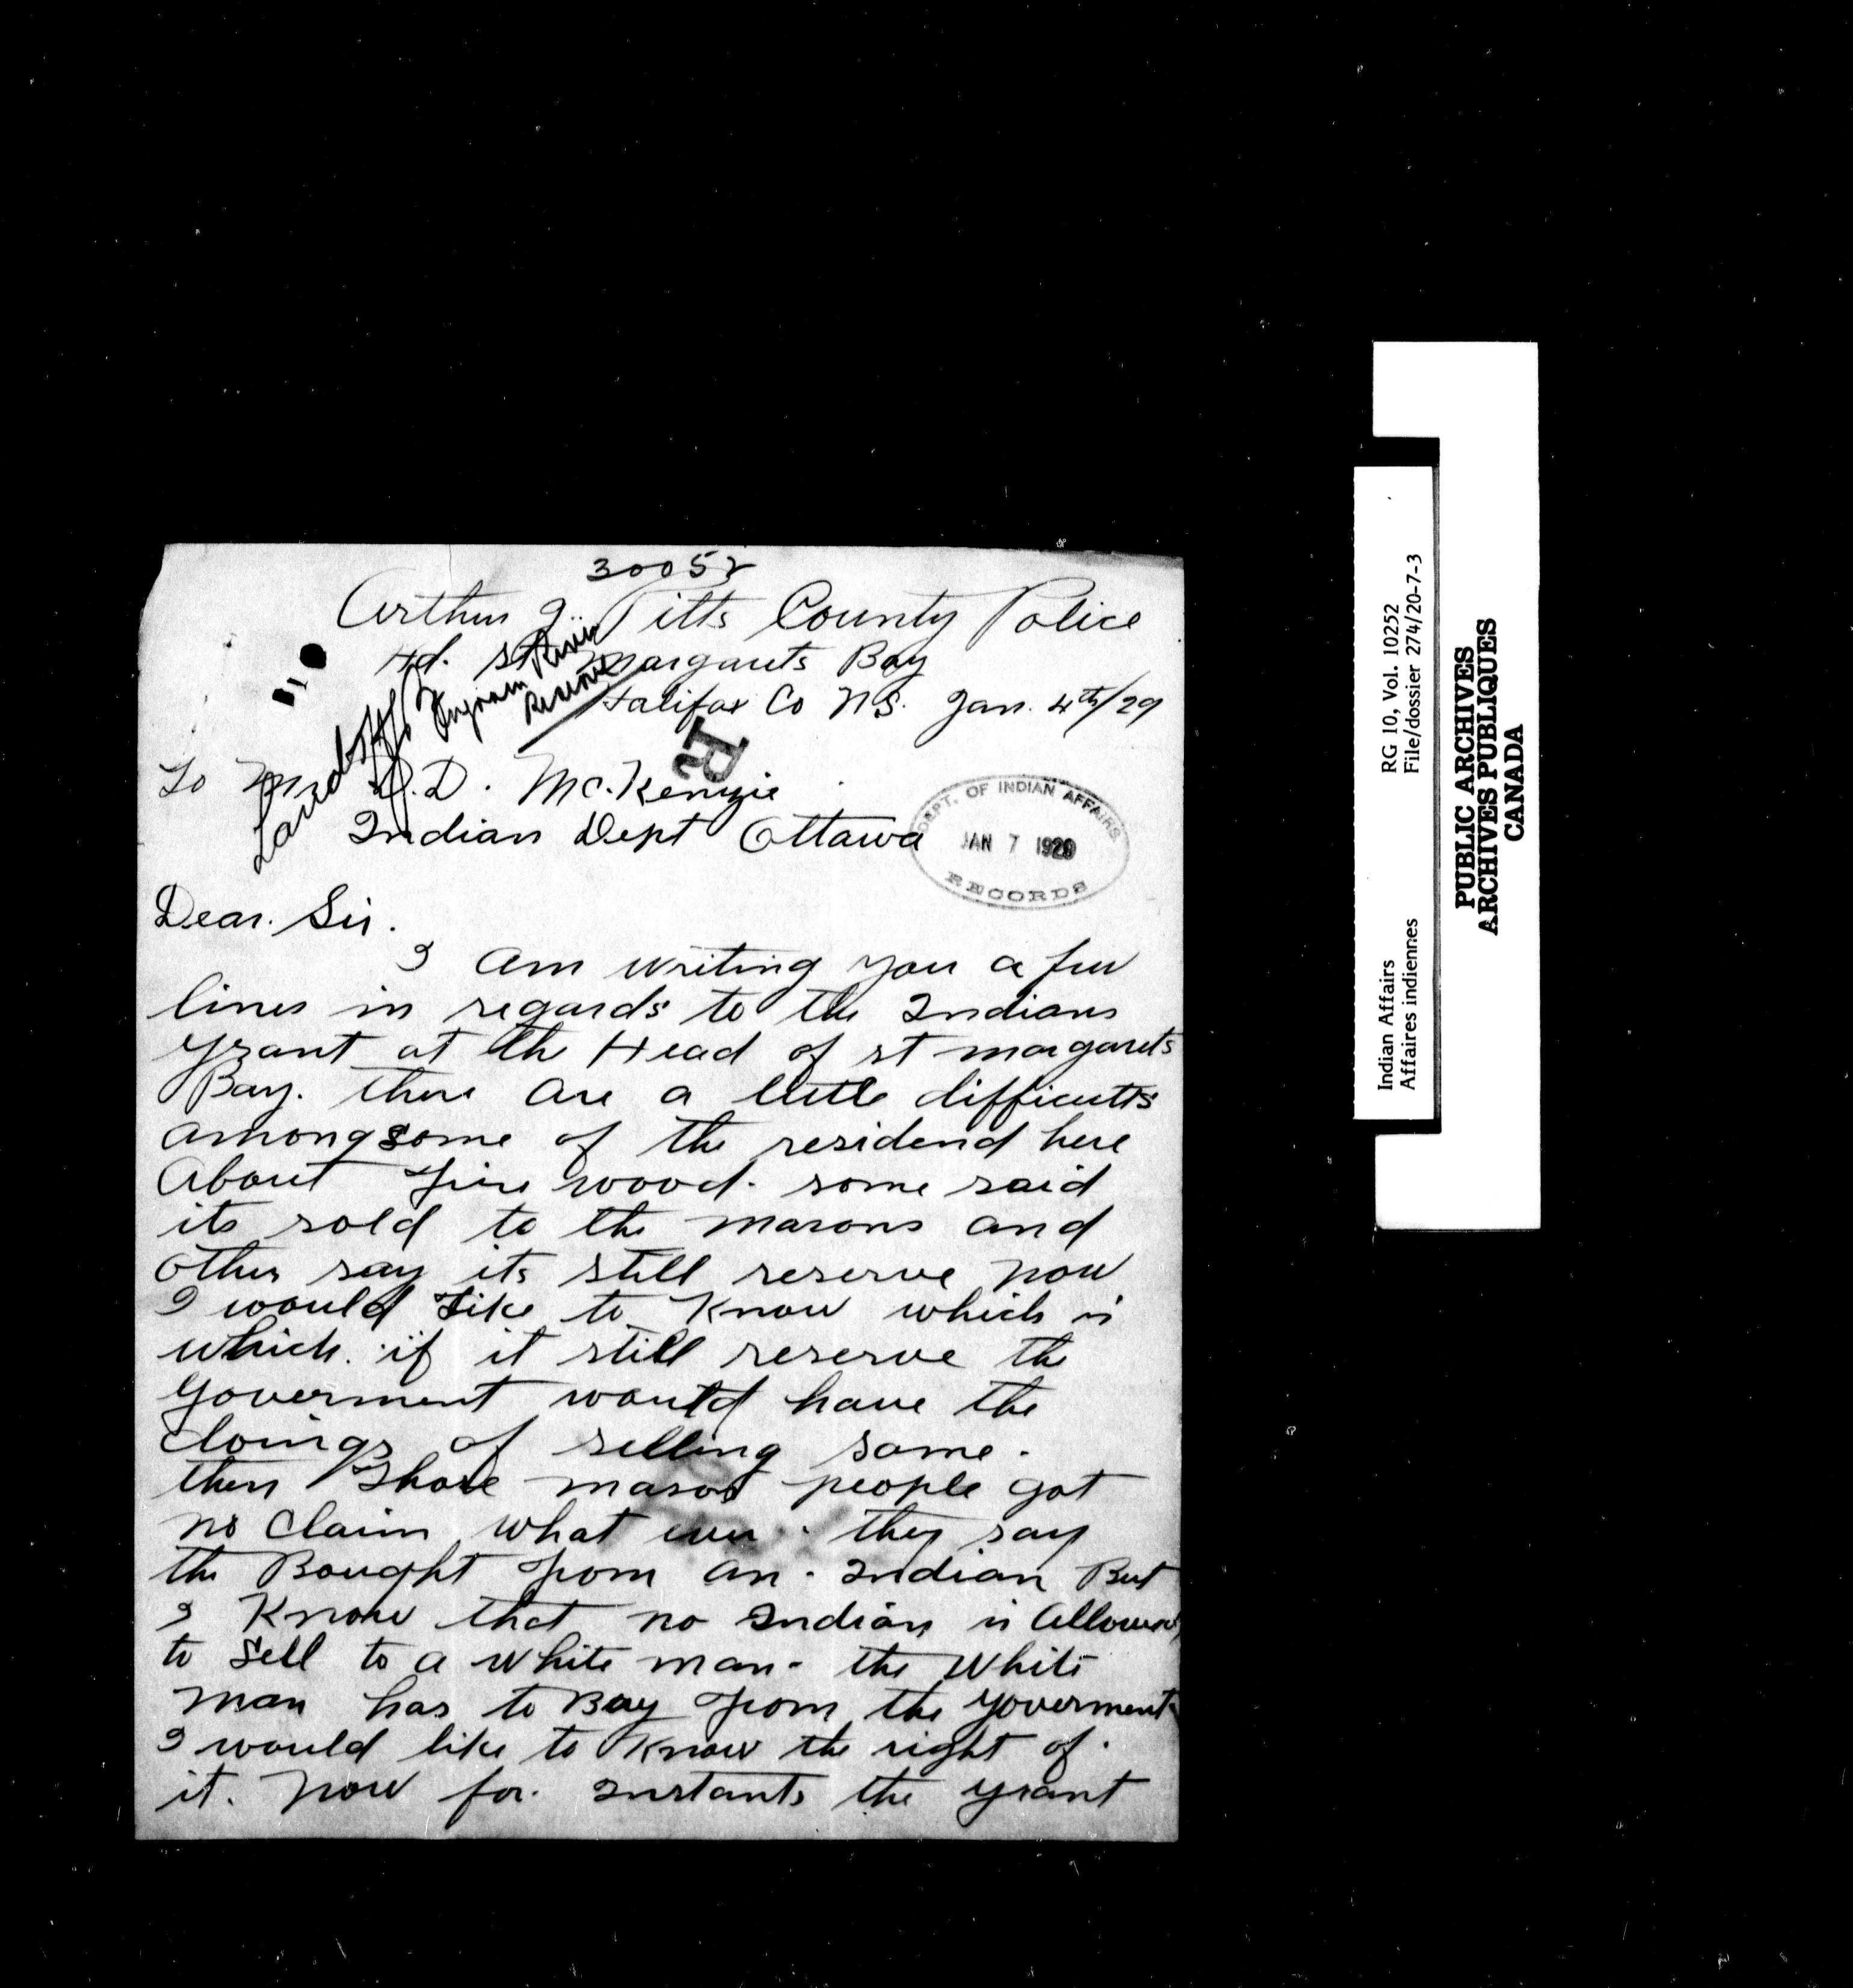 30052
Arthur J. Pitts County Police
Hd. St Margarets Bay
Halifax Co N.S. Jan. 4th/29
Ingram River
Reserve
R
To Mr. J.D. Mc.Kenzie
Indian Dept Ottawa
DEPT. OF INDIAN AFFAIRS
JAN 7 1929
RECORDS
Dear. Sir.
I am writing you a few
lines in regards to the Indians
grant at the Head of st margarets
Bay. there are a little difficults
among some of the residend here
About fire wood. some said
its sold to the masons and
other say its still reserve now
I would like to know which is
which. if it still reserve the
Goverment would have the
doings of selling same.
then those mason people got
no claim what ever. they say
the Bought from an. Indian But
I know that no Indian is allowed
to sell to a white man. the white
man has to Buy from the goverment
I would like to know the right of.
it. now for. instants the grant
Indian Affairs RG 10, Vol. 10252
Affaires indiennes File/dossier 274/20-7-3
PUBLIC ARCHIVES
ARCHIVES PUBLIQUES
CANADA